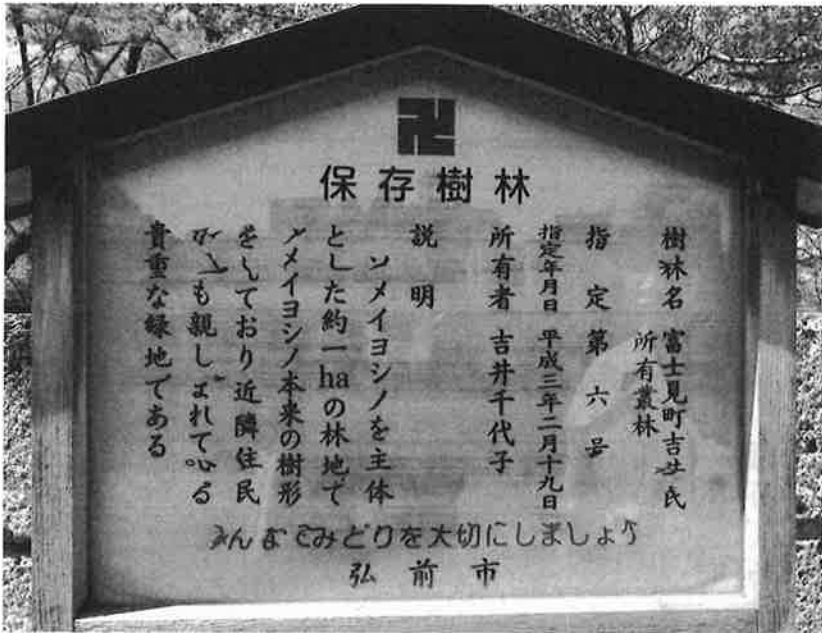 卍
保存樹林
樹林名 富士見町吉井氏
所有叢林
指定第六号
指定年月日 平成三年二月十九日
所有者 吉井千代子
説明
ソメイヨシノを主体
とした約一haの林地で
ソメイヨシノ本来の樹形
をしており近隣住民
からも親しまれている
貴重な緑地である
みんなでみどりを大切にしましょう
弘前市